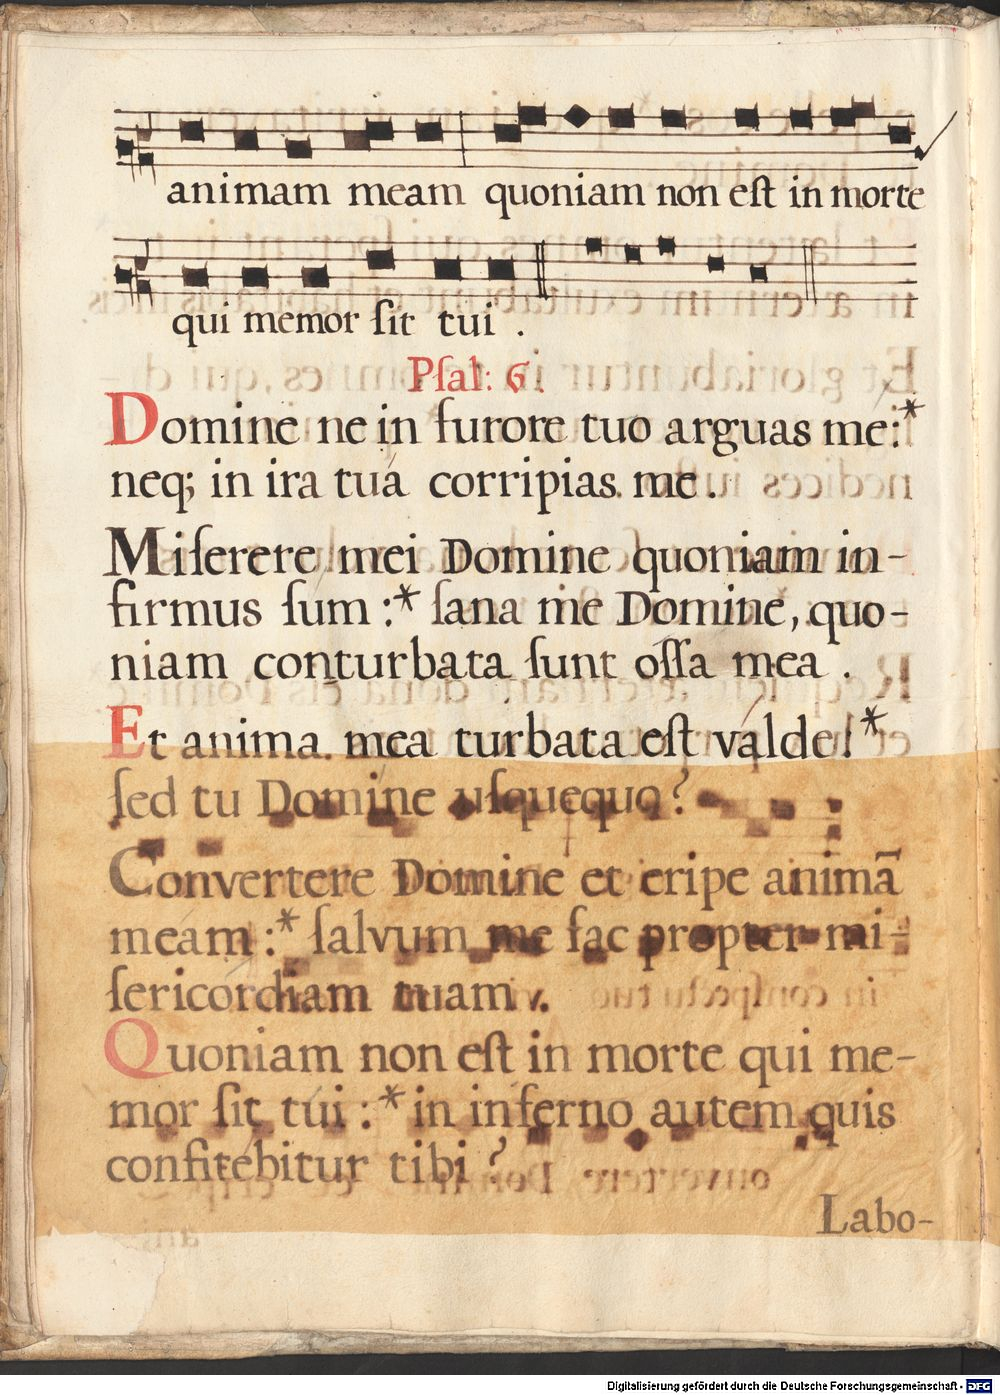 animam meam quoniam non eſt in morte
qui memor ſit tui .
Pſal: 6.
Domine ne in furore tuo arguas me:*
neq; in ira tua corripias me.
Miſerere mei Domine quoniam in-
firmus ſum :* ſana me Domine, quo-
niam conturbata ſunt oſſa mea .
Et anima mea turbata eſt válde:*
ſed tu Domine uſquequo?
Convertere Domine et eripe animã
meam :* ſalvum me fac propter mi-
ſericordiam tuam.
Quoniam non eſt in morte qui me-
mor ſit túi :* in inferno autem quis
confitébitur tibi ?
Labo-
Digitalisierung gefördert durch die Deutsche Forschungsgemeinschaft - DFG